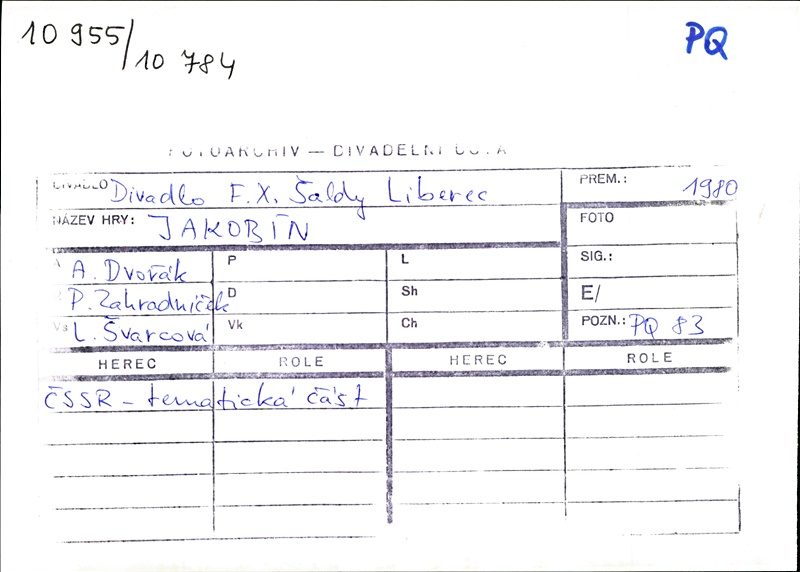 10 955/10 784
PQ
FOTOARCHIV — DIVADELNÍ ÚSTAV
DIVADLO Divadlo F.X. Šaldy Liberec PREM.: 1980
NÁZEV HRY: JAKOBÍN FOTO
A A. Dvořák P L SIG.:
R P. Zahradníček D Sh E/
Vs L. Švarcová Vk Ch POZN.: PQ 83
HEREC ROLE HEREC ROLE
ČSSR – tematická část